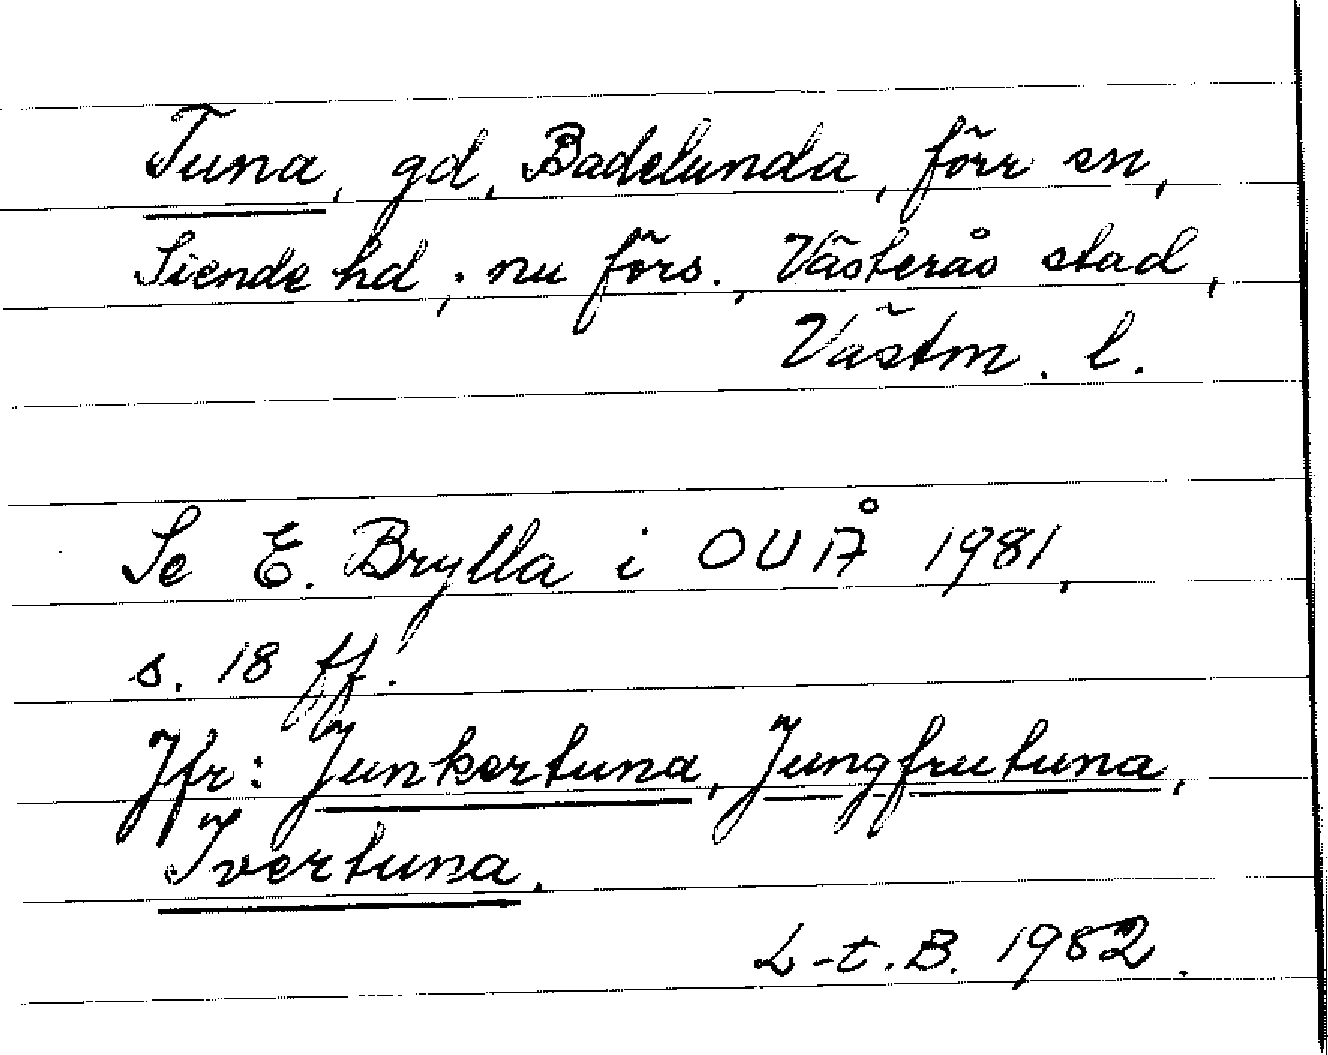 Tuna, gd, Badelunda, förr sn,
Siende hd; nu förs., Västerås stad,
Västm. l.
Se E. Brylla i OUÅ 1981,
s. 18 ff.
Jfr: Junkertuna, Jungfrutuna,
Ivertuna.
L-t. B. 1982.